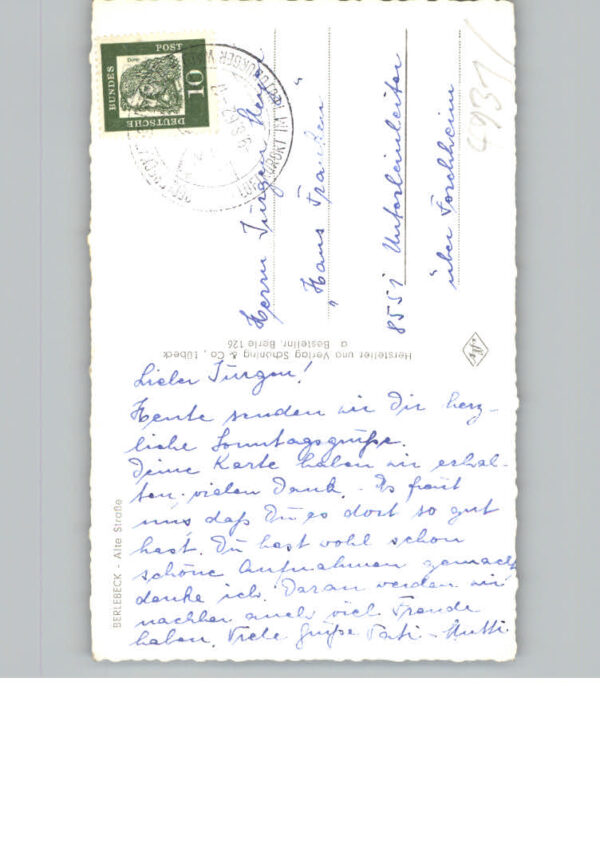 Lieber Jürgen!
Heute senden wir Dir herz-
liche Sonntagsgrüße.
Deine Karte haben wir erhal-
ten. vielen Dank. - Es freut
uns, daß Du es dort so gut
hast. Du hast wohl schon
schöne Aufnahmen gemacht
denke ich. Daran werden wir
nachher auch viel Freude
haben. Viele Grüße Vati - Mutti
Herrn Jürgen
"Haus Franken"
8551 Unterleinleiter
über Forchheim
BERLEBECK - Alte Straße
Hersteller und Verlag Schöning & Co., Lübeck
a Bestellnr. Berle 126
DEUTSCHE
BUNDES
POST
10